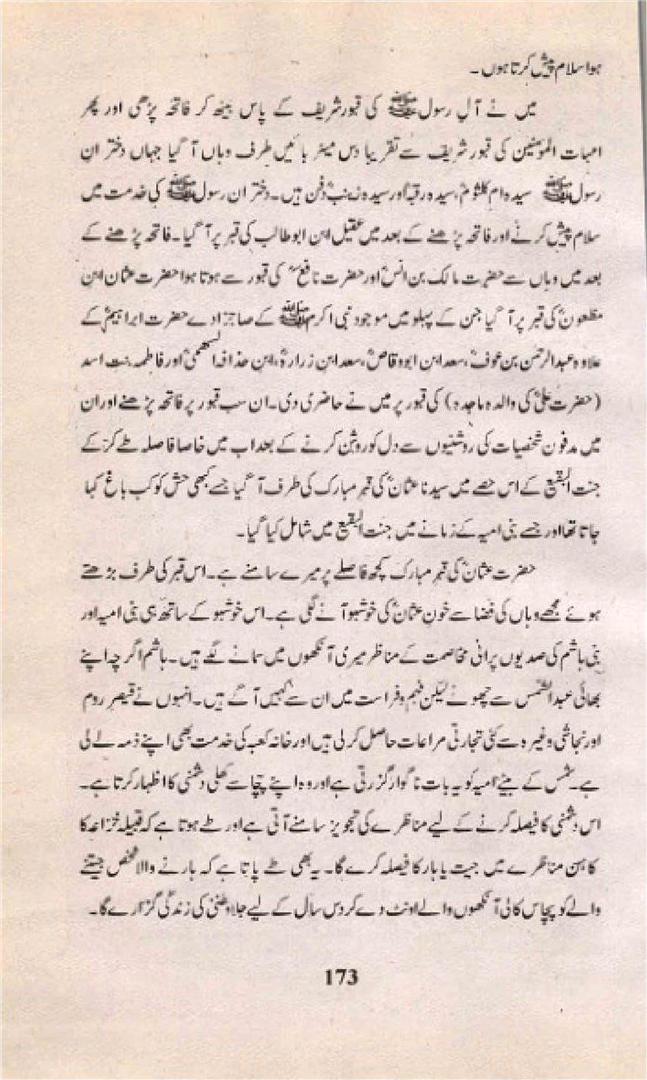 ہوا سلام پیش کرتا ہوں۔
میں نے آلِ رسول ﷺ کی قبور شریف کے پاس بیٹھ کر فاتحہ پڑھی اور پھر
امہات المومنین کی قبور شریف سے تقریبا دس میٹر بائیں طرف وہاں آ گیا جہاں دخترانِ
رسول ﷺ سیدہ ام کلثومؓ، سیدہ رقیہؓ اور سیدہ زینبؓ دفن ہیں۔ دخترانِ رسول ﷺ کی خدمت میں
سلام پیش کرنے اور فاتحہ پڑھنے کے بعد میں عقیل ابن ابو طالب کی قبر پر آ گیا۔ فاتحہ پڑھنے کے
بعد میں وہاں سے حضرت مالک بن انسؓ اور حضرت نافعؓ کی قبور سے ہوتا ہوا حضرت عثمان ابن
مظعونؓ کی قبر پر آ گیا جن کے پہلو میں موجود نبی اکرم ﷺ کے صاجزادے حضرت ابراہیمؓ کے
علاوہ عبدالرحمٰن بن عوفؓ، سعد ابن ابو وقاصؓ، سعد ابن زرارہؓ، ابن حذافہ السہمیؓ اور فاطمہ بنت اسد
(حضرت علیؓ کی والدہ ماجدہ) کی قبور پر میں نے حاضری دی۔ ان سب قبور پر فاتحہ پڑھنے اور ان
میں مدفون شخصیات کی روشنیوں سے دل کو روشن کرنے کے بعد اب میں خاصا فاصلہ طے کر کے
جنت البقیع کے اس حصے میں سیدنا عثمانؓ کی قبر مبارک کی طرف آ گیا جسے کبھی حش کوکب باغ کہا
جاتا تھا اور جسے بنی امیہ کے زمانے میں جنت البقیع میں شامل کیا گیا۔
حضرت عثمانؓ کی قبر مبارک کچھ فاصلے پر میرے سامنے ہے۔ اس قبر کی طرف بڑھتے
ہوئے مجھے وہاں کی فضا سے خونِ عثمانؓ کی خوشبو آنے لگی ہے۔ اس خوشبو کے ساتھ ہی بنی امیہ اور
بنی ہاشم کی صدیوں پرانی مخاصمت کے مناظر میری آنکھوں میں سمانے لگے ہیں۔ ہاشم اگرچہ اپنے
بھائی عبدالشمس سے چھوٹے لیکن فہم و فراست میں ان سے کہیں آگے ہیں۔ انہوں نے قیصرِ روم
اور نجاشی وغیرہ سے کئی تجارتی مراعات حاصل کر لی ہیں اور خانہ کعبہ کی خدمت بھی اپنے ذمہ لے لی
ہے۔ شمس کے بیٹے امیہ کو یہ بات ناگوار گزرتی ہے اور وہ اپنے چچا سے کھلی دشمنی کا اظہار کرتا ہے۔
اس دشمنی کا فیصلہ کرنے کے لیے مناظرے کی تجویز سامنے آتی ہے اور طے ہوتا ہے کہ قبیلہ خزاعہ کا
کاہن مناظرے میں جیت یا ہار کا فیصلہ کرے گا۔ یہ بھی طے پاتا ہے کہ ہارنے والا شخص جیتنے
والے کو پچاس کالی آنکھوں والے اونٹ دے کر دس سال کے لیے جلاوطنی کی زندگی گزارے گا۔
173